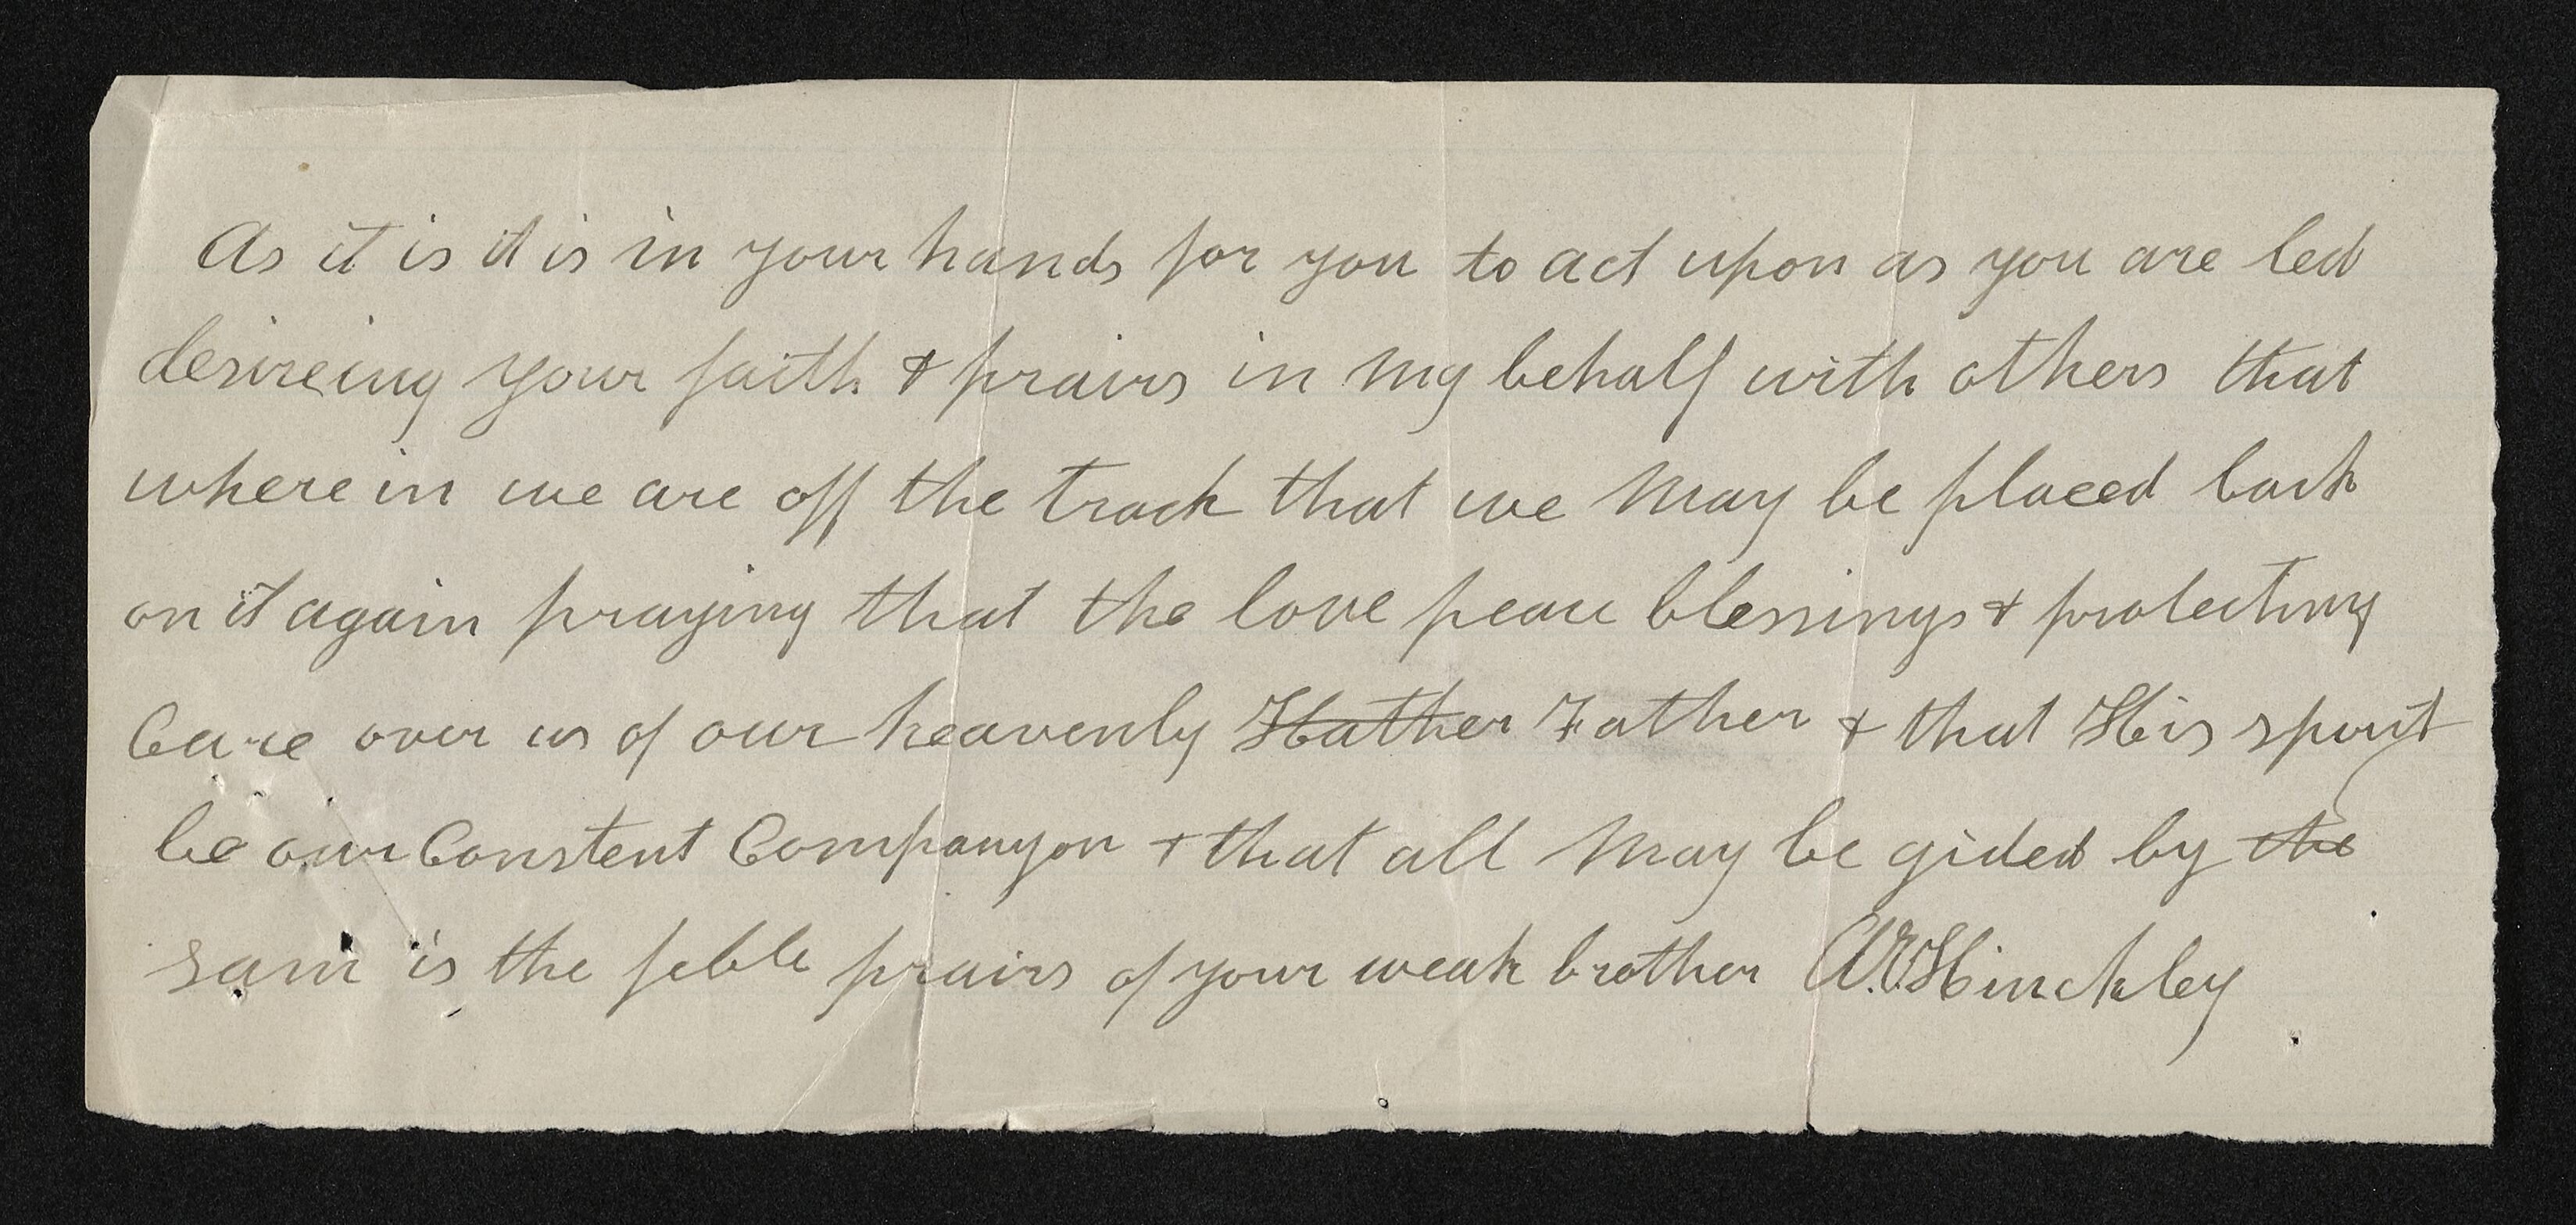 As it is it is in your hands for you to act upon as you are led
desireing your faith & prairs in my behalf with others that
where in we are off the track that we may be placed back
on it again praying that the love peace blessings & protecting
Care over us of our heavenly Hather Father & that His spirit
be our Constent Companyon & that all may be gided by the
same is the feble prairs of your weak brother A.E. Hinckley